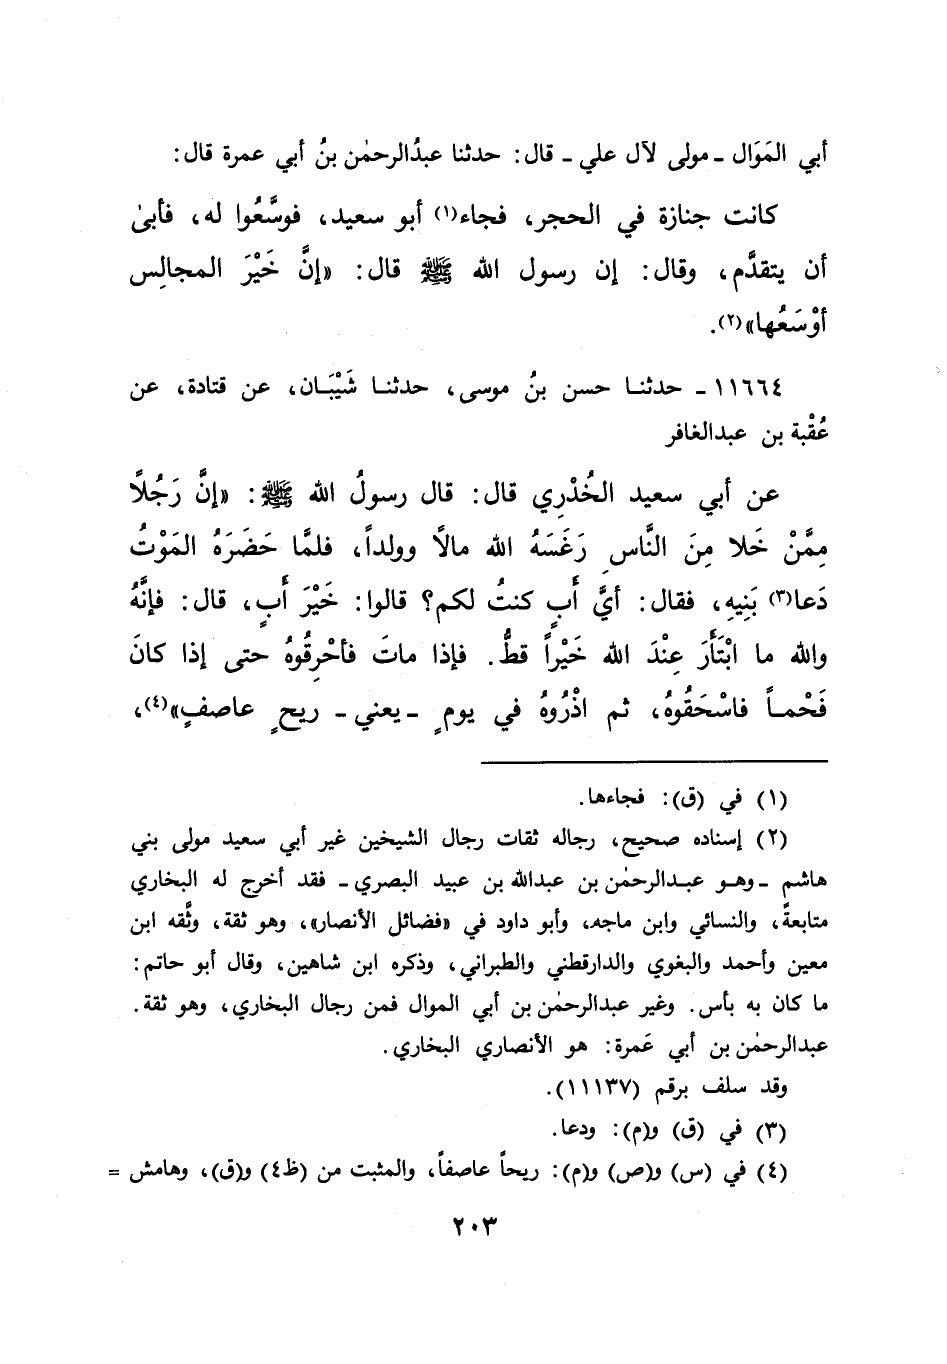 أبي المَوَال ـ مولى لآل علي ـ قال: حدثنا عبدُالرحمٰن بنُ أبي عمرة قال:
كانت جنازة في الحجر، فجاء(١) أبو سعيد، فوسَّعُوا له، فأبىٰ
أن يتقدَّم، وقال: إن رسول الله ﷺ قال: «إنَّ خَيْرَ المجالِس
أوْسَعُها»(٢).
١١٦٦٤ ـ حدثنا حسن بنُ موسى، حدثنا شَيْبَان، عن قتادة، عن
عُقْبة بن عبدالغافر
عن أبي سعيد الخُدْرِي قال: قال رسولُ الله ﷺ: «إنَّ رَجُلًا
مِمَّنْ خَلا مِنَ النَّاسِ رَغَسَهُ الله مالًا وولداً، فلمَّا حَضَرَهُ المَوْتُ
دَعا(٣) بَنِيهِ، فقال: أيَّ أَبٍ كنتُ لكم؟ قالوا: خَيْرَ أَبٍ، قال: فإنَّهُ
والله ما ابْتَأَرَ عِنْدَ الله خَيْراً قطُّ. فإذا ماتَ فأحْرِقُوهُ حتى إذا كانَ
فَحْماً فاسْحَقُوهُ، ثم اذْرُوهُ في يومٍ ـ يعني ـ ريحٍ عاصفٍ»(٤)،
(١) في (ق): فجاءها.
(٢) إسناده صحيح، رجاله ثقات رجال الشيخين غير أبي سعيد مولى بني
هاشم ـ وهو عبدالرحمٰن بن عبدالله بن عبيد البصري ـ فقد أخرج له البخاري
متابعةً، والنسائي وابن ماجه، وأبو داود في «فضائل الأنصار»، وهو ثقة، وثَّقه ابن
معين وأحمد والبغوي والدارقطني والطبراني، وذكره ابن شاهين، وقال أبو حاتم:
ما كان به بأس. وغير عبدالرحمٰن بن أبي الموال فمن رجال البخاري، وهو ثقة.
عبدالرحمٰن بن أبي عَمرة: هو الأنصاري البخاري.
وقد سلف برقم (١١١٣٧).
(٣) في (ق) و(م): ودعا.
(٤) في (س) و(ص) و(م): ريحاً عاصفاً، والمثبت من (ظ٤) و(ق)، وهامش =
٢٠٣